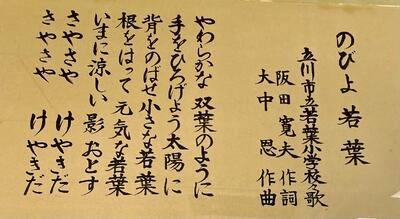 のびよ 若葉
立川市立若葉小学校々歌
阪田 寛夫 作詞
大中 恩 作曲
やわらかな 双葉のように
手をひろげよう太陽に
背をのばせ小さな若葉
根をはって 元気な若葉
いまに涼しい 影 おとす
さやさや けやきだ
さやさや けやきだ